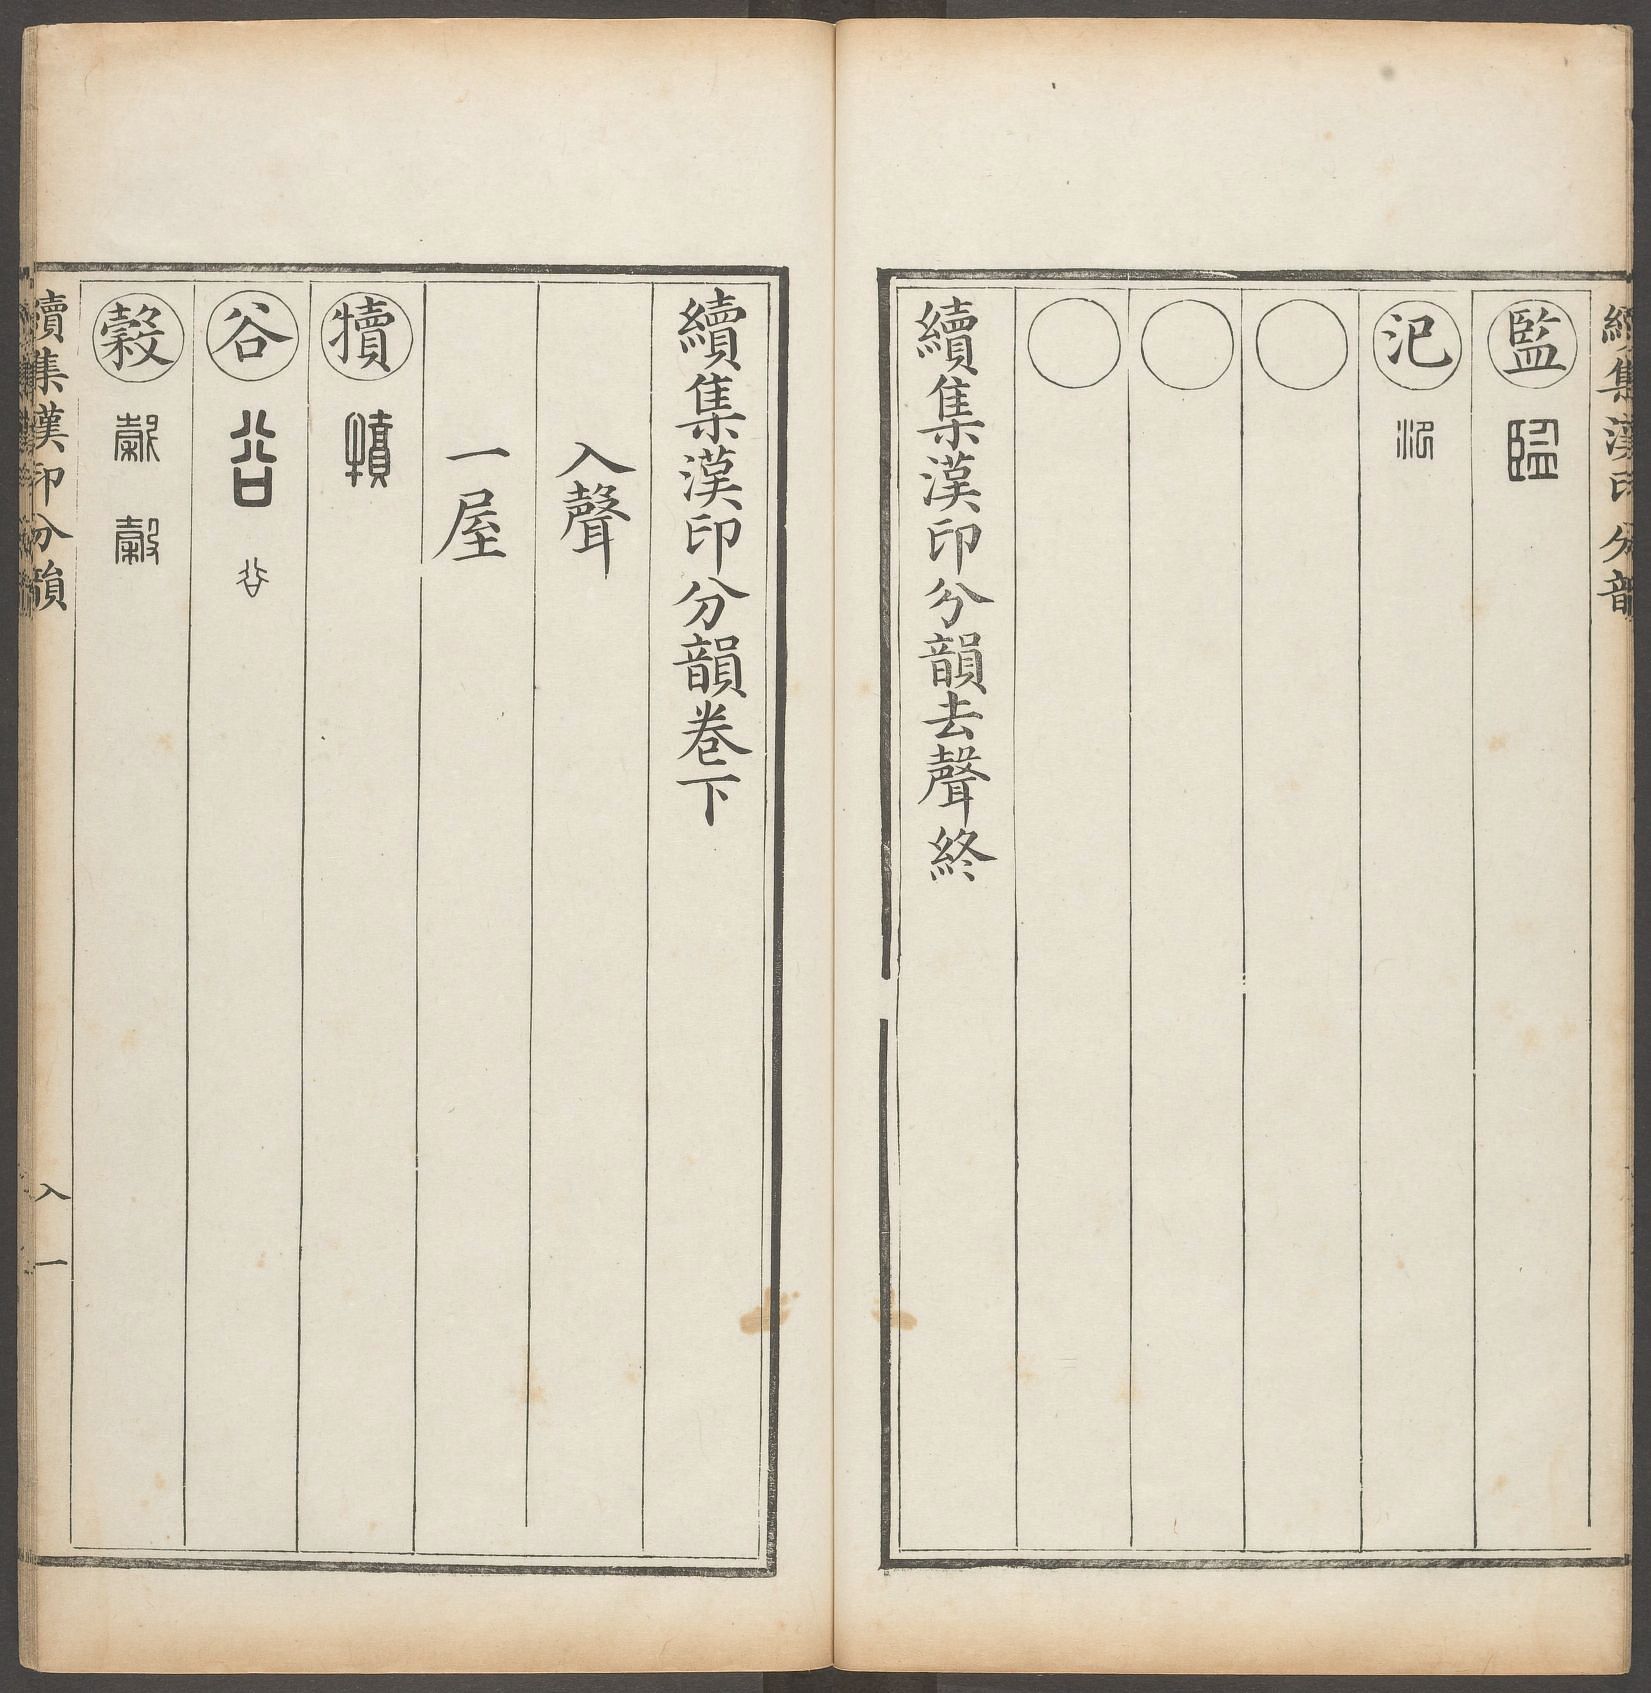 續集漢印分韻
監 監
氾 氾
續集漢印分韻去聲終
續集漢印分韻卷下
入聲
一屋
犢 犢
谷 谷 谷
穀 穀 穀
續集漢印分韻 入 一